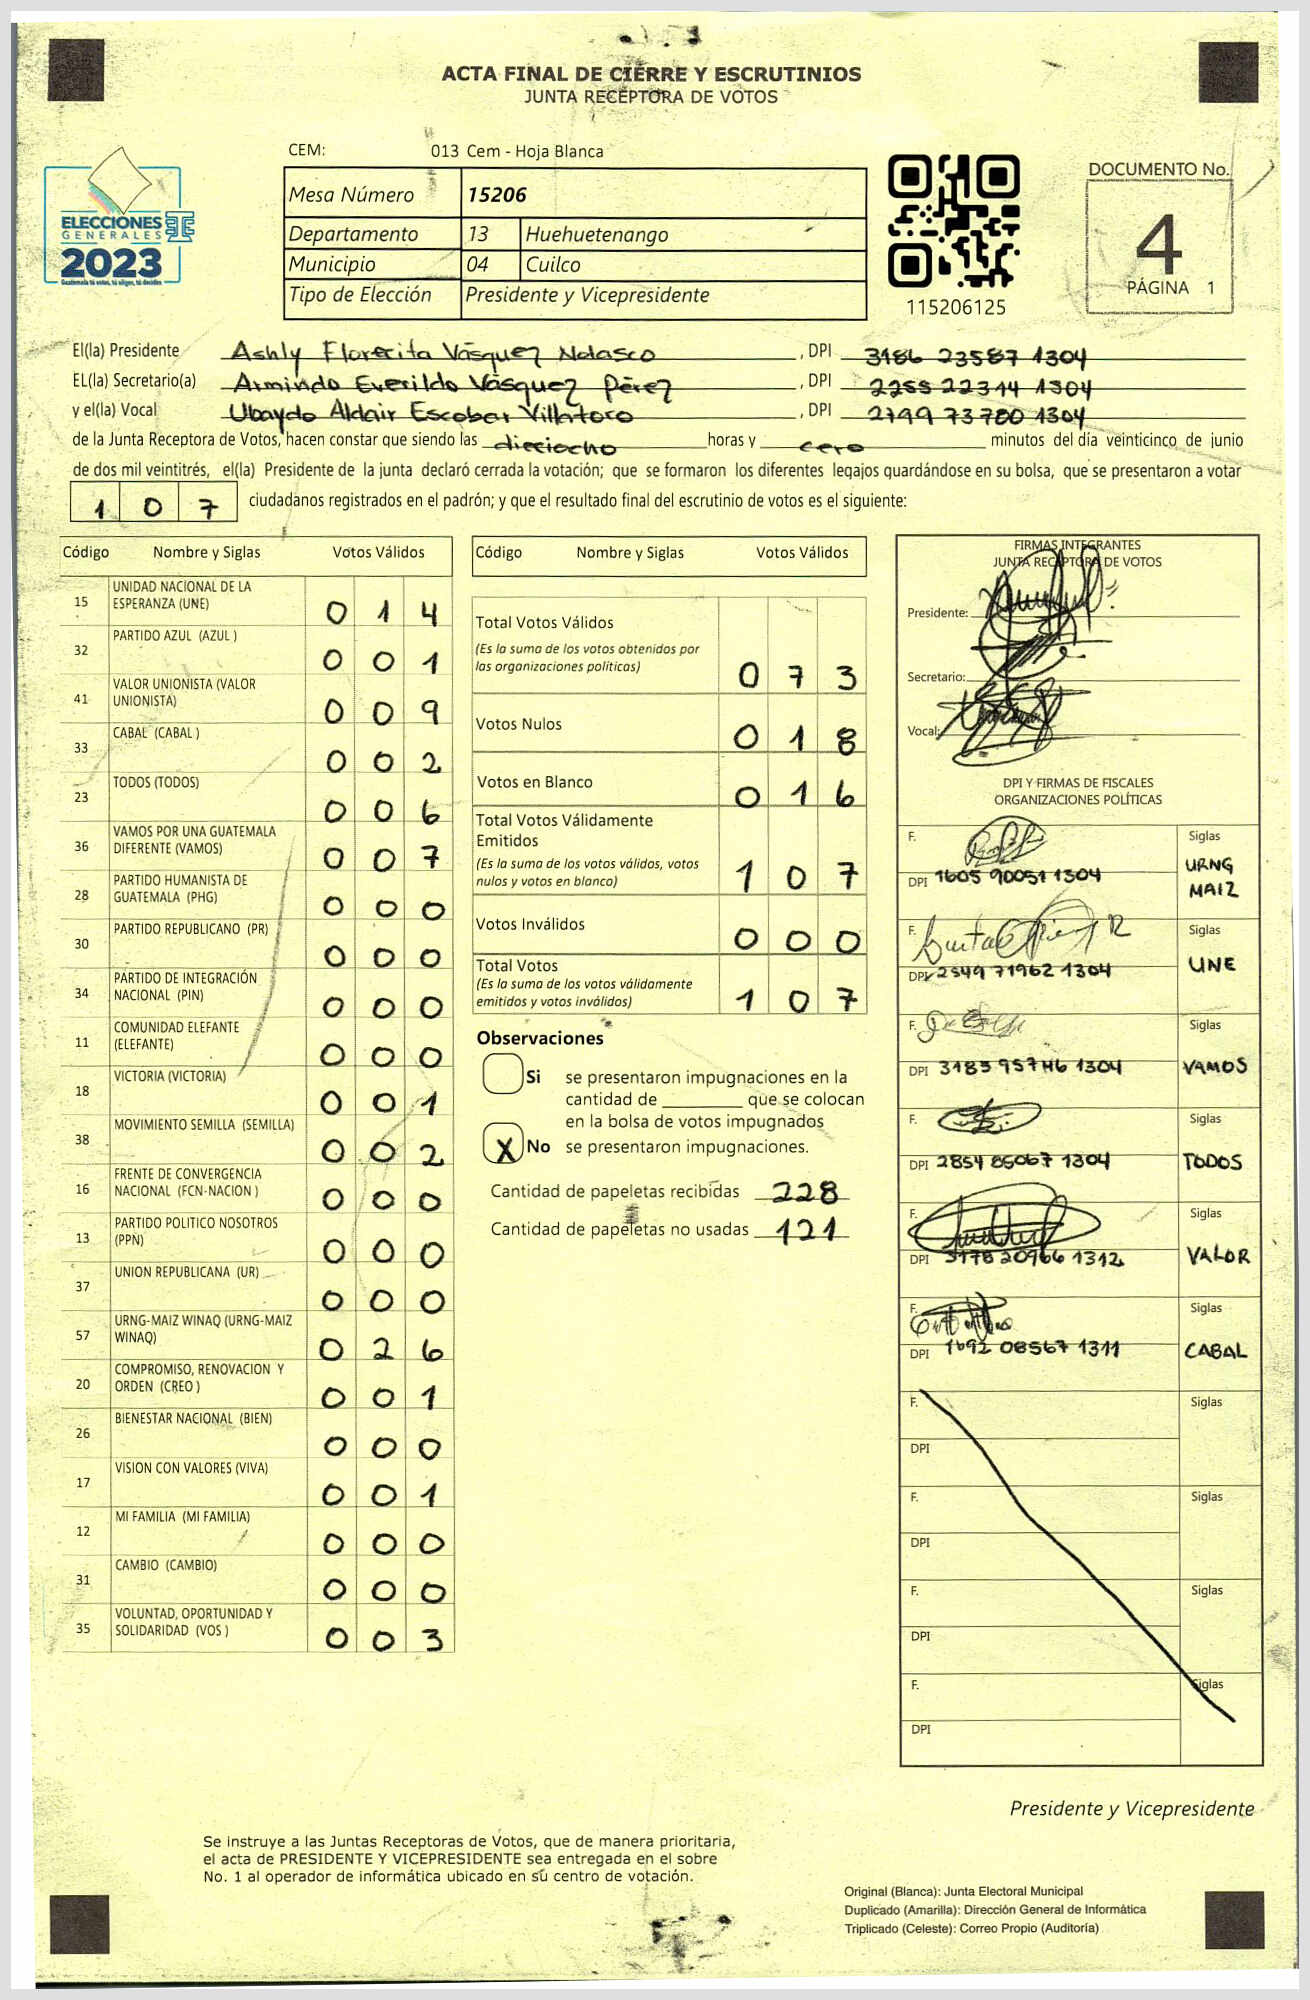 ACTA FINAL DE CIERRE Y ESCRUTINIOS
JUNTA RECEPTORA DE VOTOS
CEM: 013 Cem - Hoja Blanca
ELECCIONES
GENERALES
2023
Guatemala tú votas, tú eliges, tú decides
Mesa Número 15206
Departamento 13 Huehuetenango
Municipio 04 Cuilco
Tipo de Elección Presidente y Vicepresidente
115206125
DOCUMENTO No.
4
PÁGINA 1
El(la) Presidente Ashly Florecita Vásquez Nolasco , DPI 3186 23587 1304
EL(la) Secretario(a) Armindo Everildo Vásquez Pérez , DPI 2255 22314 1304
y el(la) Vocal Ubaydo Aldair Escobar Villatoro , DPI 2799 73780 1304
de la Junta Receptora de Votos, hacen constar que siendo las dieciocho horas y cero minutos del día veinticinco de junio
de dos mil veintitrés, el(la) Presidente de la junta declaró cerrada la votación; que se formaron los diferentes legajos guardándose en su bolsa, que se presentaron a votar
1 0 7 ciudadanos registrados en el padrón; y que el resultado final del escrutinio de votos es el siguiente:
Código Nombre y Siglas Votos Válidos
15 UNIDAD NACIONAL DE LA ESPERANZA (UNE) 0 1 4
32 PARTIDO AZUL (AZUL ) 0 0 1
41 VALOR UNIONISTA (VALOR UNIONISTA) 0 0 9
33 CABAL (CABAL ) 0 0 2
23 TODOS (TODOS) 0 0 6
36 VAMOS POR UNA GUATEMALA DIFERENTE (VAMOS) 0 0 7
28 PARTIDO HUMANISTA DE GUATEMALA (PHG) 0 0 0
30 PARTIDO REPUBLICANO (PR) 0 0 0
34 PARTIDO DE INTEGRACIÓN NACIONAL (PIN) 0 0 0
11 COMUNIDAD ELEFANTE (ELEFANTE) 0 0 0
18 VICTORIA (VICTORIA) 0 0 1
38 MOVIMIENTO SEMILLA (SEMILLA) 0 0 2
16 FRENTE DE CONVERGENCIA NACIONAL (FCN-NACION ) 0 0 0
13 PARTIDO POLITICO NOSOTROS (PPN) 0 0 0
37 UNION REPUBLICANA (UR) 0 0 0
57 URNG-MAIZ WINAQ (URNG-MAIZ WINAQ) 0 2 6
20 COMPROMISO, RENOVACION Y ORDEN (CREO ) 0 0 1
26 BIENESTAR NACIONAL (BIEN) 0 0 0
17 VISION CON VALORES (VIVA) 0 0 1
12 MI FAMILIA (MI FAMILIA) 0 0 0
31 CAMBIO (CAMBIO) 0 0 0
35 VOLUNTAD, OPORTUNIDAD Y SOLIDARIDAD (VOS ) 0 0 3
Código Nombre y Siglas Votos Válidos
Total Votos Válidos
(Es la suma de los votos obtenidos por
las organizaciones políticas) 0 7 3
Votos Nulos 0 1 8
Votos en Blanco 0 1 6
Total Votos Válidamente
Emitidos
(Es la suma de los votos válidos, votos
nulos y votos en blanco) 1 0 7
Votos Inválidos 0 0 0
Total Votos
(Es la suma de los votos válidamente
emitidos y votos inválidos) 1 0 7
Observaciones
Si se presentaron impugnaciones en la
cantidad de ________ que se colocan
en la bolsa de votos impugnados
X No se presentaron impugnaciones.
Cantidad de papeletas recibidas 228
Cantidad de papeletas no usadas 121
FIRMAS INTEGRANTES
JUNTA RECEPTORA DE VOTOS
Presidente:
Secretario:
Vocal:
DPI Y FIRMAS DE FISCALES
ORGANIZACIONES POLÍTICAS
F. Siglas
DPI 1605 90051 1304 URNG MAIZ
F. Siglas
DPI 2549 71962 1304 UNE
F. Siglas
DPI 3185 95746 1304 VAMOS
F. Siglas
DPI 2854 85067 1304 TODOS
F. Siglas
DPI 3178 20966 1312 VALOR
F. Siglas
DPI 1692 08567 1311 CABAL
F. Siglas
DPI
F. Siglas
DPI
F. Siglas
DPI
F. Siglas
DPI
Presidente y Vicepresidente
Se instruye a las Juntas Receptoras de Votos, que de manera prioritaria,
el acta de PRESIDENTE Y VICEPRESIDENTE sea entregada en el sobre
No. 1 al operador de informática ubicado en su centro de votación.
Original (Blanca): Junta Electoral Municipal
Duplicado (Amarilla): Dirección General de Informática
Triplicado (Celeste): Correo Propio (Auditoría)